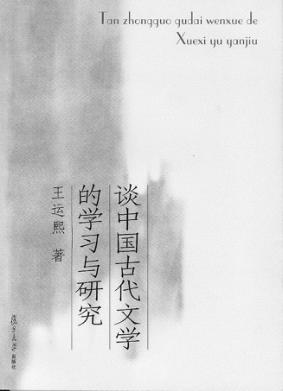 Tan zhongguo gudai wenxue de
Xuexi yu yanjiu
谈中国古代文学
的学习与研究
王运熙 著
復旦大學出版社